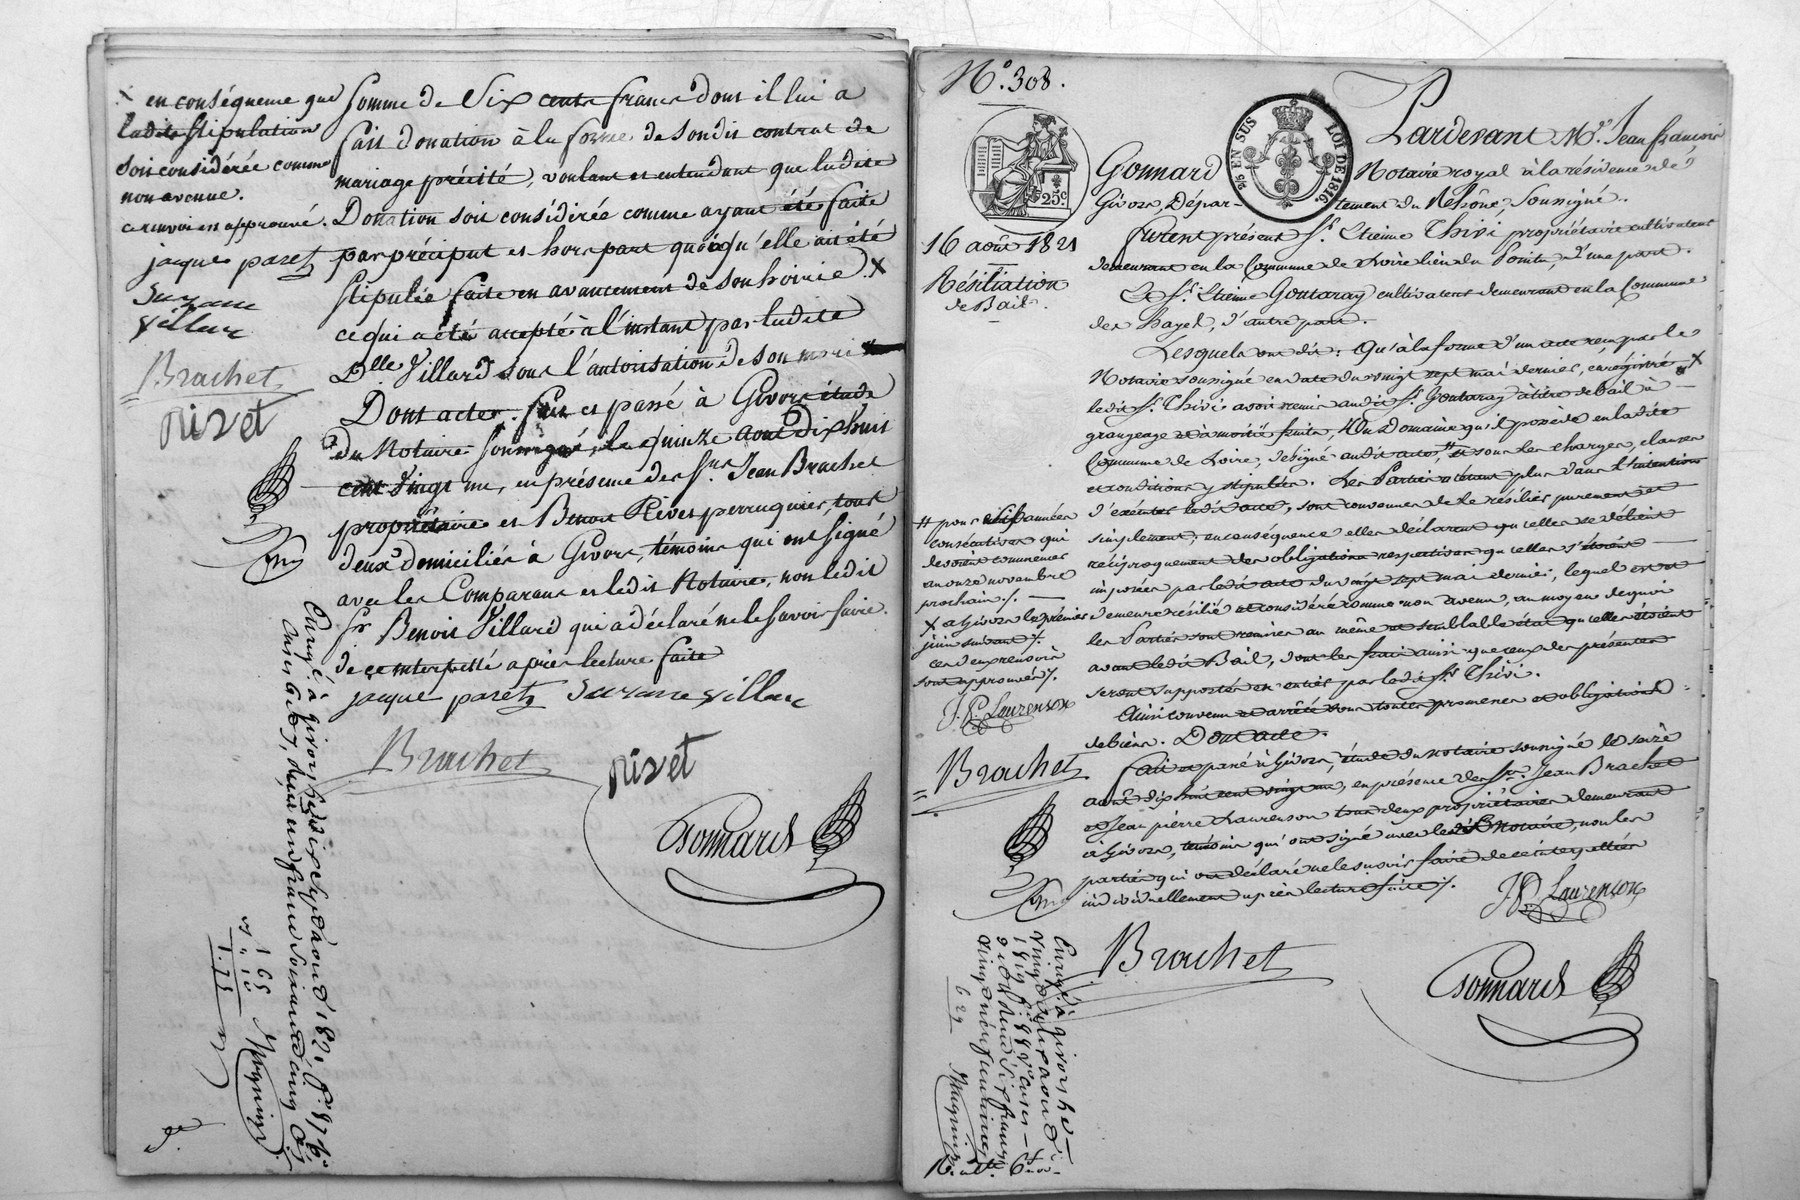 x en conséquence que
ladite stipulation
soit considérée comme
non avenue.
ce renvoi est approuvé.
jaque paret
Suzane
villar
Brachet
Rivet
Somme de Six cents francs dont il lui a
fait donation à la forme de son dit contrat de
mariage précité, voulant et entendant que ladite
Donation soit considérée comme ayant été faite
par préciput et hors part quoiqu'elle ait été
stipulée faite en avancement de son hoirie. x
ce qui a été accepté à l'instant par ladite
Dlle Villard sous l'autorisation de son mari
Dont acte. fait et passé à Givors étude
du Notaire soussigné, le quinze aout Dix huit
cent vingt un, en présence des Srs Jean Brachet
propriétaire et Benoit Rivet perruquier, tous
deux domiciliés à Givors, témoins qui ont signé
avec les Comparans et ledit Notaire, non ledit
Sr Benoit Villard qui a déclaré ne le savoir faire.
de ce interpellé après lecture faite
jaque paret Suzane villar
Brachet
Rivet
Gonnard
Enregé à givors le dix sept aout 1821 fo 87
un franc soixante cinq
1 65
" 10
1.75
N° 308.
25c
25 EN SUS LOI DE 1816
16 août 1821
Résiliation
de Bail.
Pardevant Me Jean françois
Gonnard Notaire royal à la résidence de
Givors, Département du Rhône, Soussigné.
furent présent Sr Etienne Thivi, propriétaire cultivateur
demeurant en la Commune de Loire lieu du , d'une part.
Et Sr Etienne Goutaray cultivateur demeurant en la Commune
des hayes, d'autre part.
Lesquels ont dit: Qu'à la forme d'un acte reçu par le
Notaire soussigné en date du vingt sept mai dernier, enregistré x
ledit Sr Thivi avoir remis audit Sr Goutaray à titre de bail à
grangeage et à moitié fruits, un Domaine qu'il possède en ladite
Commune de Loire, désigné audit acte, # sous les charges, clauses
et conditions y stipulées. Les Parties n'étant plus dans l'intention
d'exécuter ledit acte, sont convenues de le résilier purement et
simplement; en conséquence elles déclarent qu'elles se délient
réciproquement des obligations respectives qu'elles s'étoient
imposées par ledit acte du vingt sept mai dernier, lequel est et
demeure résilié et considéré comme non avenu, au moyen de quoi
les Parties sont remises au même et semblable état qu'elles étoient
avant ledit Bail, dont les frais ainsi que ceux des présentes
seront supportés en entier par ledit Sr Thivi.
Ainsi convenu et arrêté sous toutes promesses et obligations
de biens. Dont acte.
fait et passé à Givors, étude du notaire soussigné le seize
août dix huit cent vingt un, en présence des Srs Jean Brachet
et Jean pierre Laurenson tous deux propriétaires demeurant
à Givors, témoins qui ont signé avec ledit Notaire, non les
parties qui ont déclaré ne le savoir faire de ce interpellées
individuellement après lecture faite ./.
# pour six années
consécutives qui
devoient commencer
au onze novembre
prochain ./.
x à Givors le premier
juin suivant ./.
ces deux renvois
sont approuvés ./.
J. P. Laurenson
Brachet
J P Laurenson
Brachet
Gonnard
Enregé à givors le
vingt aout
1821 fo 88
reçu deux francs
vingt neuf centimes